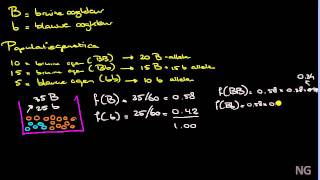 B = bruine oogkleur
b = blauwe oogkleur
Populatiegenetica
10 = bruine ogen (BB) → 20 B-allele
15 = bruine ogen (Bb) → 15 B - 15 b allele
5 = blauwe ogen (bb) → 10 b allele
35 B
25 b
f(B) = 35/60 = 0.58
f(b) = 25/60 = 0.42
1.00
0.34
f(BB) = 0.58 × 0.58
f(Bb) = 0.58 ×
NG